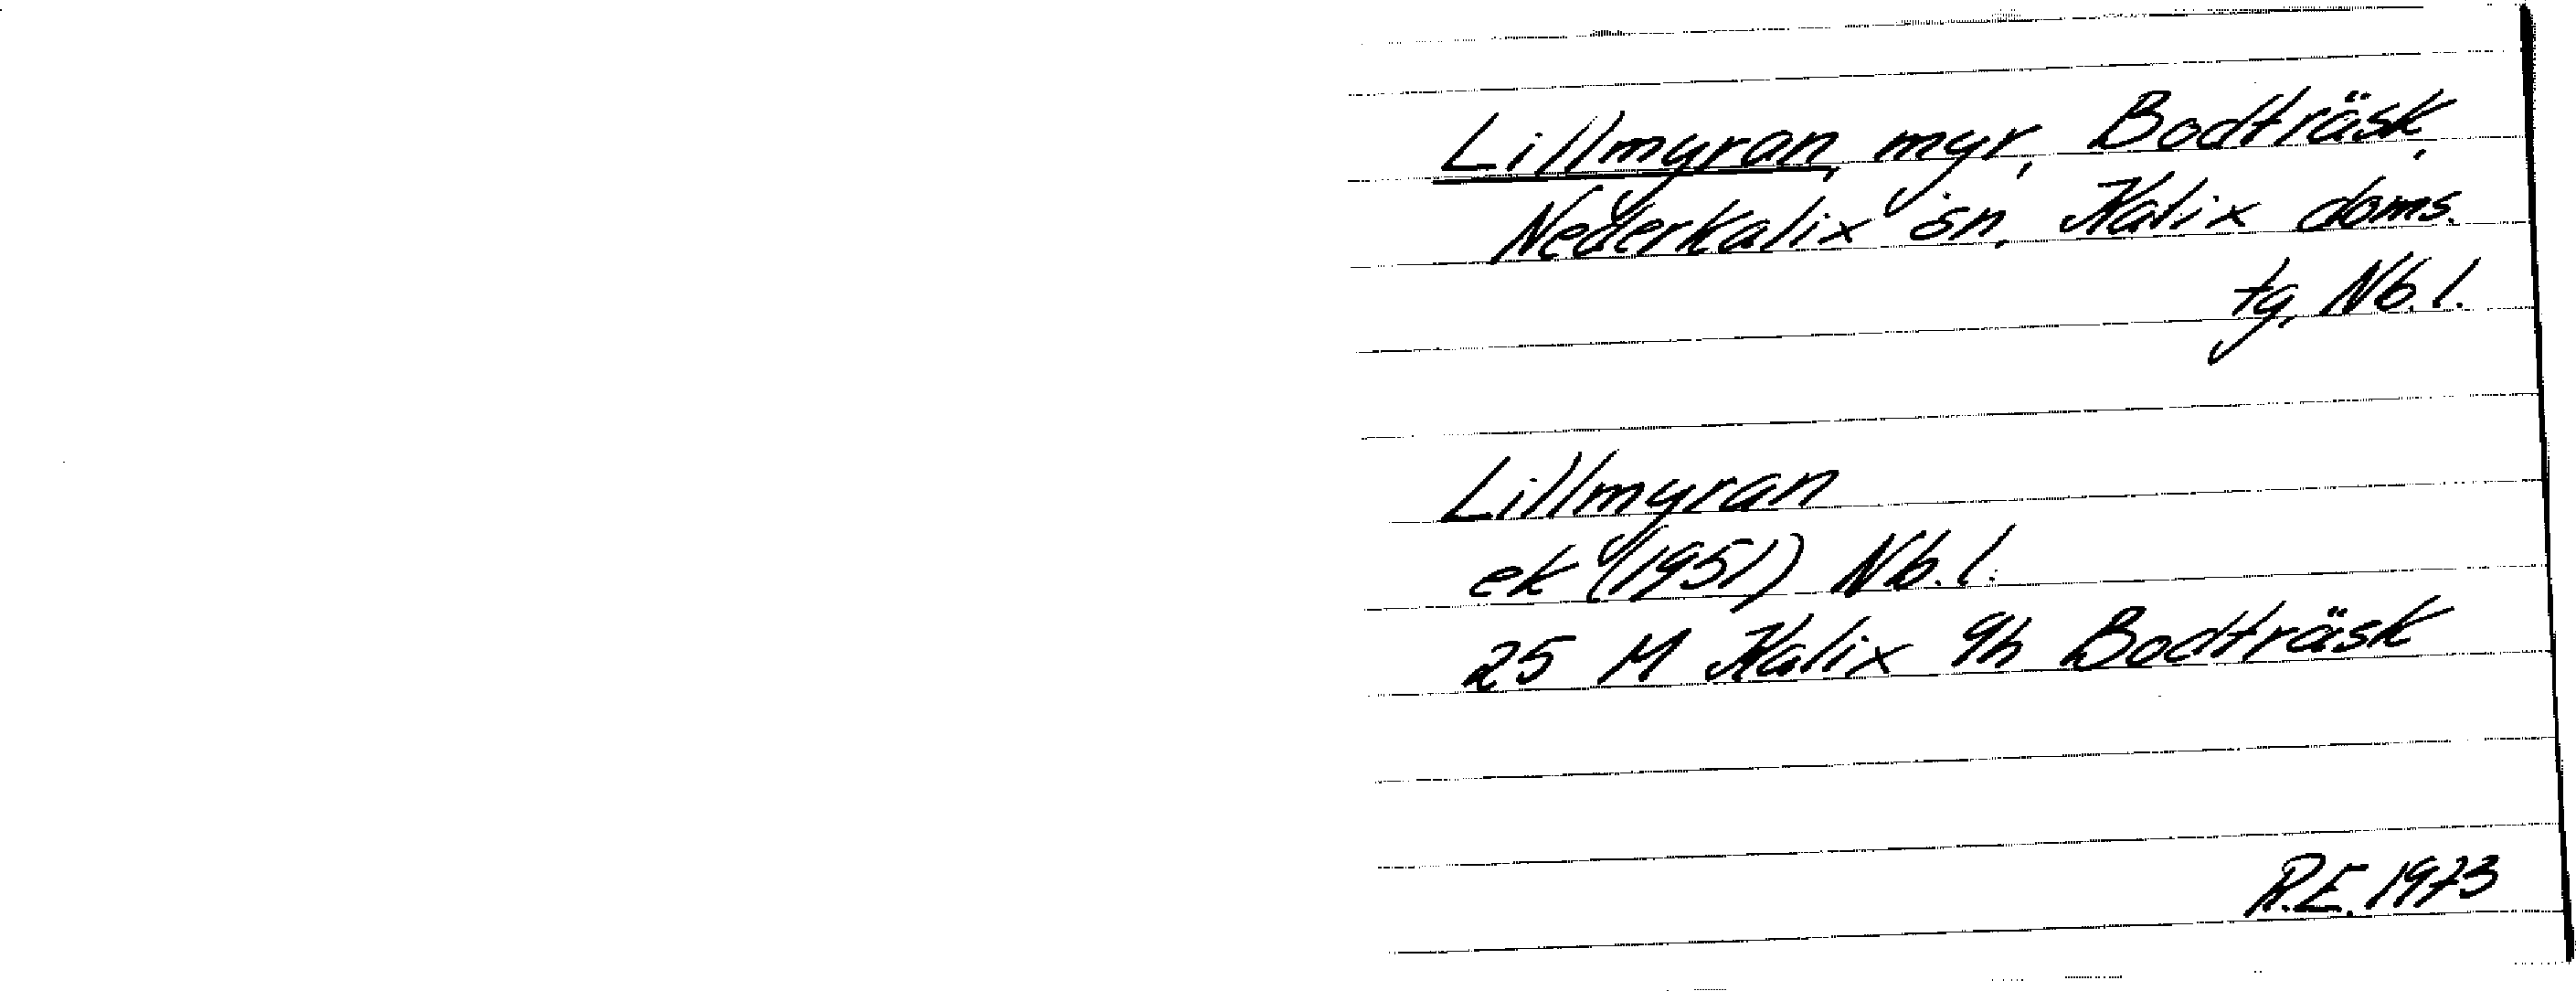 Lillmyran, myr, Bodträsk,
Nederkalix sn, Kalix doms.
tg, Nb.l.
Lillmyran
ek (1951) Nb.l.
25 M Kalix 9h Bodträsk
R.E. 1973